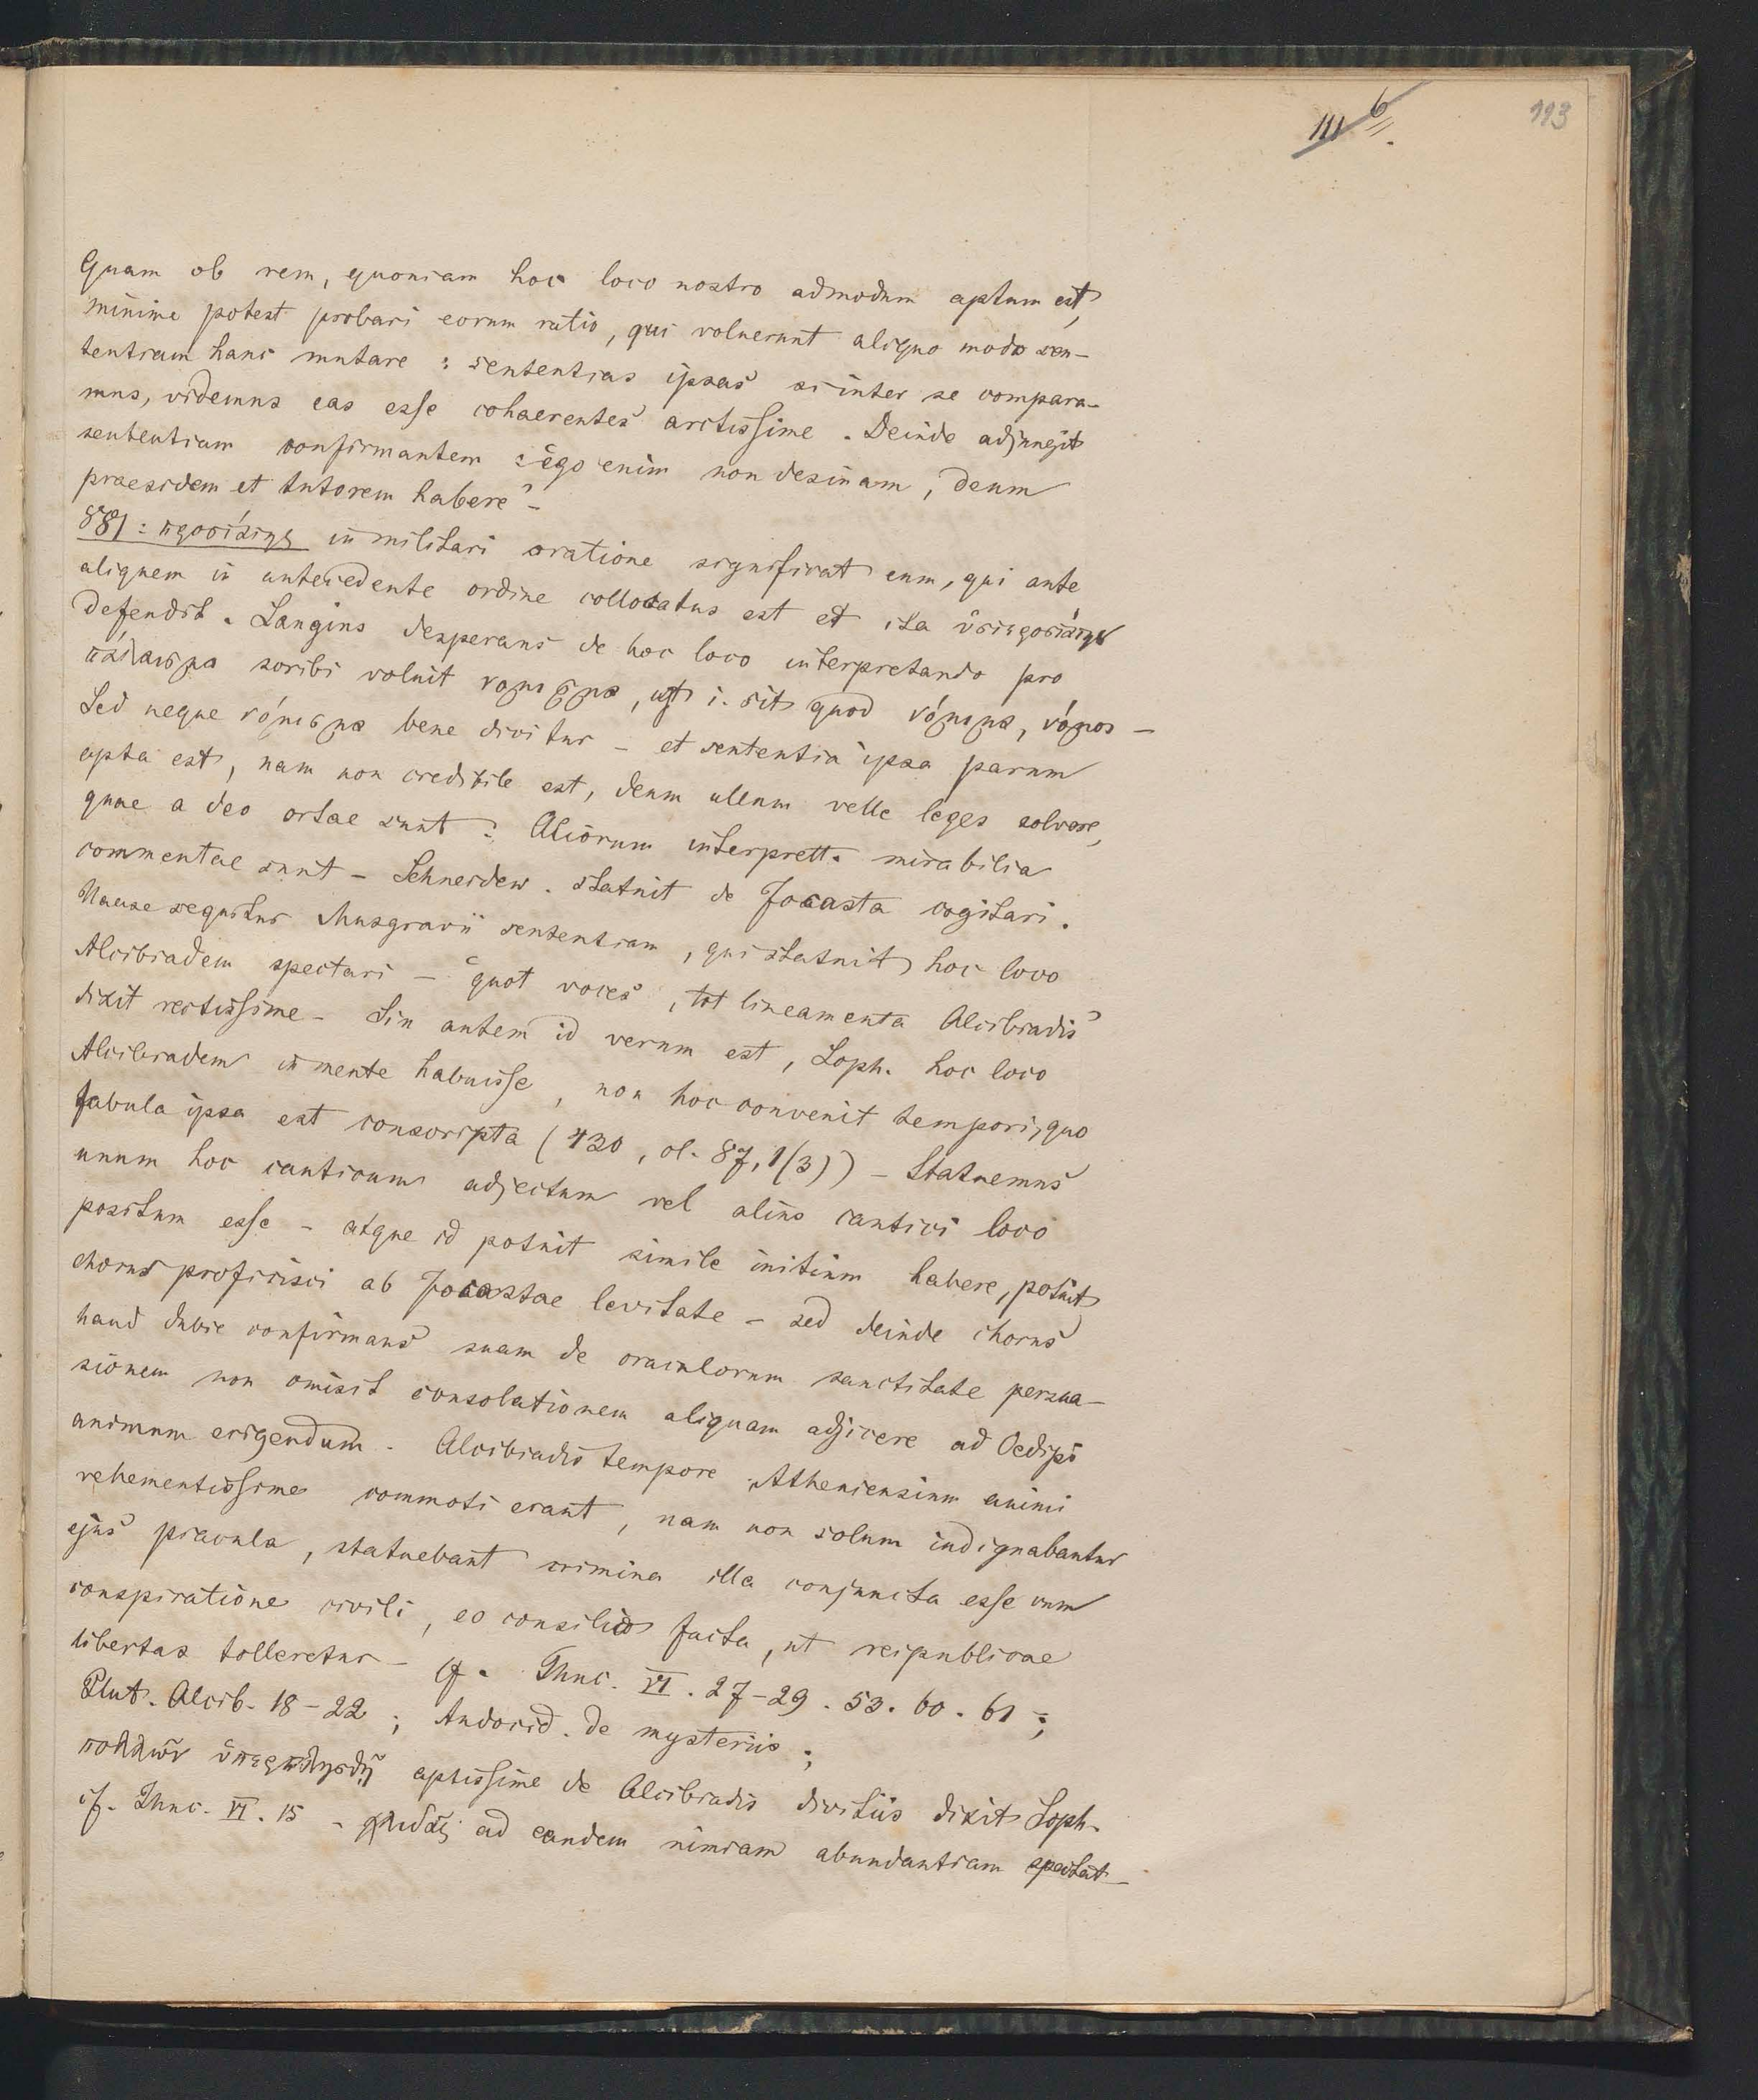 III 6
113
Quam ob rem, quoniam hoc loco nostro admodum aptum est,
minime potest probari eorum ratio, qui voluerunt aliquo modo sen-
tentiam hanc mutare: sententias ipsas si inter se compara-
mus, videmus eas esse cohaerentes arctissime. Deinde adjungit
sententiam confirmantem: ego enim non desinam, deum
praesidem et tutorem habere" -
881: προστάτης in militari oratione significat eum, qui ante
aliquem in antecedente ordine collocatus est et ita
defendit. Langius desperans de hoc loco interpretando pro
πάλαισμα scribi voluit νομισμα, ut i. sit quod νόμιμα, νόμος -
Sed neque νόμισμα bene dicitur - et sententia ipsa parum
apta est, nam non credibile est, deum ullum velle leges solvere,
quae a deo ortae sunt: Aliorum interprett. mirabilia
commentae sunt - Schneidew. statuit de Jocasta cogitari.
Naucse sequitur Musgravii sententiam, qui statuit hoc loco
Alcibiadem spectari - "quot voces, tot lineamenta Alcibiadis"
dixit rectissime - Sin autem id verum est, Soph. hoc loco
Alcibiadem in mente habuisse, non hoc convenit tempori, quo
fabula ipsa est conscripta (430, ol. 87, 1(3)) - Statuemus
unum hoc canticum adjectum vel alius cantici loco
positum esse - atque id potuit simile initium habere, potuit
chorus proficisci ab Jocastae levitate - sed deinde chorus
haud dubie confirmans suam de oraculorum sanctitate persua-
sionem non omisit consolationem aliquam adjicere ad Oedipi
animum erigendum - Alcibiadis tempore Atheniensium animi
vehementissime commoti erant, nam non solum indignabantur
ejus piacula, statuebant crimina illa conjuncta esse cum
conspiratione civili, eo consilio facta, ut reipublicae
libertas tolleretur - cf. Thuc. VI. 27-29. 53. 60. 61;
Plut. Alcib. 18-22; Andocid. de mysteriis;
πολλῶν ὑπερπλησθῇ aptissime de Alcibiadis divitiis dixit Soph.
cf. Thuc. VI. 15 - ad eandem nimiam abundantiam spectat -